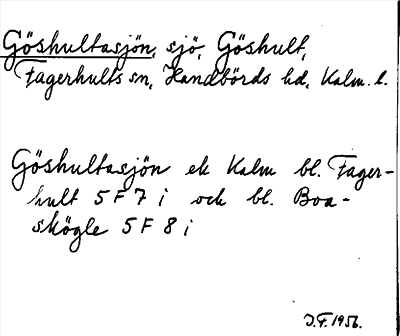 Göshultasjön, sjö, Göshult,
Fagerhults sn, Handbörds hd, Kalm. l.
Göshultasjön ek Kalm bl. Fager-
hult 5 F 7 i och bl. Boa-
skögle 5 F 8 i
J.F. 1956.